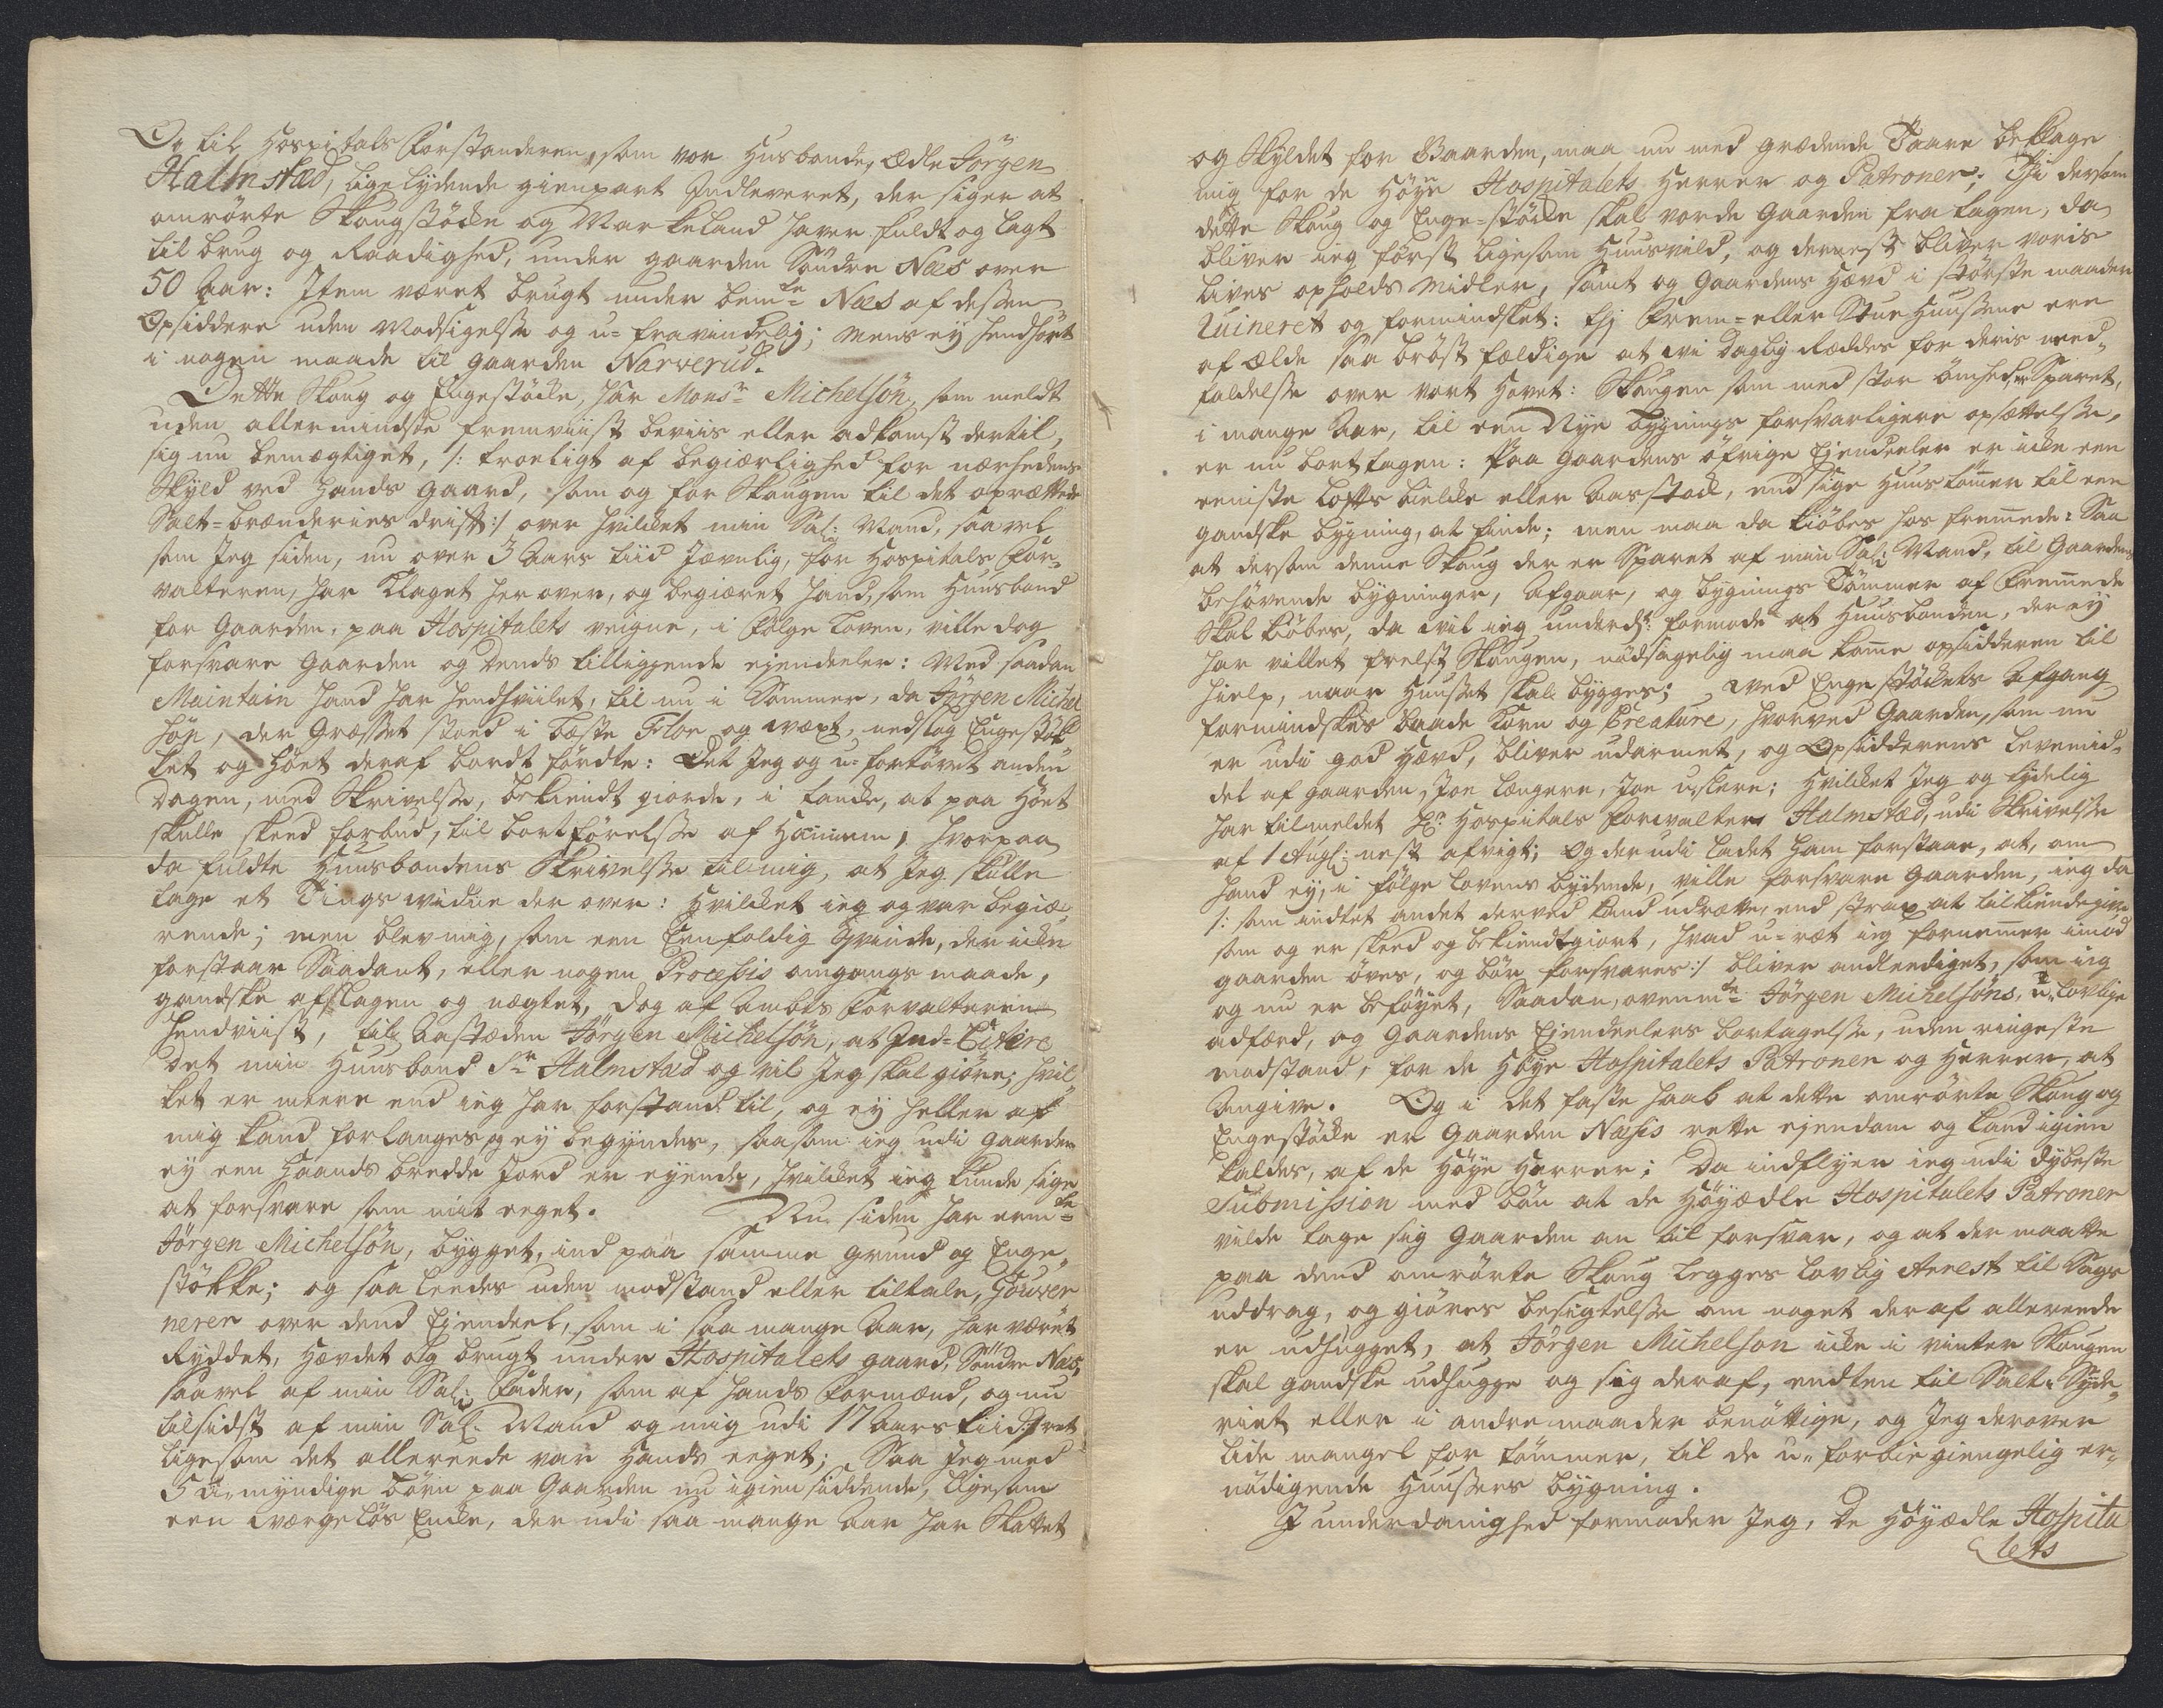 Og til Hospitals Forstanderen, som vor Husbonde, Ædle Jörgen
Halmstæd, ligelydende gienpart Indleveret, der siger at
omrörte Skougstöcke og Markeland haver fuldt og lagt
til brug og Raadighed, under gaarden Söndre Næs over
50 Aar: Item været brugt under bemte Næs af dessen
Opsiddere uden Modsigelse og u-fravindelig; mens ey henhört
i nogen maade til gaarden Narverud.
Dette Skoug og Engestöcke, har Monsr Michelsön, som meldt
uden allermindste fremviist beviis eller adkomst dertil,
sig nu bemægtiget, /: troeligt af begiærlighed for nærhedens
Skyld ved hands gaard, som og for Skougen til det oprættede
Salt-brænderies drift :/ over hvilcket min Sal: Mand, saavel
som Jeg siden, nu over 3 Aars tiid jævnlig, for Hospitals For-
valteren, har klaget herover, og begiæret hand, som Huusbond
for Gaarden, paa Hospitalets veigne, i fölge Loven, ville dog
forsvare Gaarden og dends tilliggende ejendeeler: Med saadan
Maintain hand har hendhviilet, til nu i Sommer, da Jörgen Michel
sön, der Græsset stoed i bæste Flor og væxt, nedslog Engestök
ket og Höet deraf bordt fördte: Det Jeg og u-fortövet anden
dagen, med Skrivelse, bekiendt giorde, i tancke, at paa Höet
skulle skeed forbud, til bortförelse af Hannem, hvorpaa
da fuldte Huusbondens Skrivelse til mig, at Jeg skulle
tage et Tings vidne der over: Hvilcket ieg og var begiæ-
rende; men blev mig, som een Eenfoldig Qvinde, der icke
forstaar Saadant, eller nogen Processis omgangs maade,
gandske afslagen og nægtet, dog af Ambts Forvalteren
hendviist, til Aastæden Jörgen Michelsön, at Ind-Citere
det min Huusbond Sr Halmstæd og vil Jeg skal giöre; hvil
ket er meere end ieg har forstand til, og ey heller af
mig kand forlanges og ey begyndes, saasom ieg udi Gaarden
ey een Haands bredde Jord er eyende, hvilcket ieg kunde sige
at forsvare som mit eget. Nu siden har ermte
Jörgen Michelsön, bygget, ind paa samme grund og Enge-
stökke; og saaleedes uden modstand eller tiltale, Gouver
nerer over dend Ejendeel, som i saa mange Aar, har været
Ryddet, hævdet og brugt under Hospitalets gaard, Söndre Næs,
saavel af min Sal: Fader, som af hands Formænd, og nu
tilsidst af min Sal: Mand og mig udi 17 Aars tiid,
ligesom det allereede var Hands eget; Saa Jeg med
5 u-myndige börn paa Gaarden nu igien siddende, ligesom
een Værgelös Encke, der udi saa mange Aar har Skattet
og Skyldet for Gaarden, maa nu med grædende Taare beklage
mig for de Höye Hospitalets Herrer og Patroner; Thi dersom
dette Skoug og Enge-stöcke skal vorde Gaarden fra tagen, da
bliver ieg först ligesom Huusvild, og dernest bliver voris
Lives opholds Midler, samt og Gaardens Hævd i störste maader
Ruineret og formindsket: thj Frem- eller Stue Huusene ere
af ælde saa bröst fældige at vi daglig Ræddes for deris need-
faldelse over vort Hovet: Skougen som med stor ömhed er Sparet,
i mange Aar, til een Nye bygnings forsvarligere opsættelse,
er nu borttagen: Paa Gaardens öfrige Ejendeeler er icke een
eeniste Loftsbielcke eller Aasstock, end sige Huustömer til een
gandske bygning, at finde; men maa da kiöbes hos fremmede: Saa
at dersom denne Skoug der er Sparet af min Sal: Mand, til Gaardens
behövende bygninger, Afgaar, og bygnings Tömmer af Fremmede
Skal köbes, da vil ieg underd: formode at Huusbonden, der ey
har villet frelst Skougen, nödsagelig maa komme opsidderen til
hielp, naar Huuset skal bygges; Ved Engestöckets Afgang
formindskes baade Korn og Creature, hvorved Gaarden, som nu
er udi god hævd, bliver udarmet, og Opsidderens Levemid-
del af gaarden, Joe længere, Joe uslere; Hvilcket Jeg og tydelig
har tilmeldet Hr Hospitals Forvalter Halmstæd, udi Skrivelse
af 1 Augs: nest afvigt; Og der udi ladet ham forstaae, at, om
hand ey, i fölge Lovens bydende, ville forsvare Gaarden, ieg da
/: som indtet andet derved kand udrætte, end strax at tilkiendegive
som og er skeed og bekiendtgiort, hvad u-ræt ieg fornemmer imod
gaarden öves, og bör forsvares :/ bliver andleediget, som ieg
og nu er beföyet, Saadan, ovenmte Jörgen Michelsöns, u-lovlige
adfærd, og Gaardens Ejendeelers bortagelse, uden ringeste
modstand, for de Höye Hospitalets Patroner og Herrer, at
Angive. Og i det faste Haab at dette omrörte Skoug og
Engestöcke er Gaarden Næsis rette ejendom og kand igien
kaldes, af de Höye Herrer; Da indflyer ieg udi dybeste
Submission med bön at de Höyædle Hospitalets Patroner
vilde tage sig Gaarden an til forsvar, og at der maatte
paa dend omrörte Skoug legges lovlig Arrest til Sags
uddrag, og giöres besigtelse om noget deraf allereede
er udhugget, at Jörgen Michelson icke i vinter Skougen
skal gandske udhugge og sig deraf, endten til Salt-Syde-
riet eller i andre maader benöttige, og Jeg derover
lide mangel for tömmer, til de u-forbiegiengelig er-
nödigende Huusers bygning.
I underdanighed formoder Jeg, De Höyædle Hospita
lets